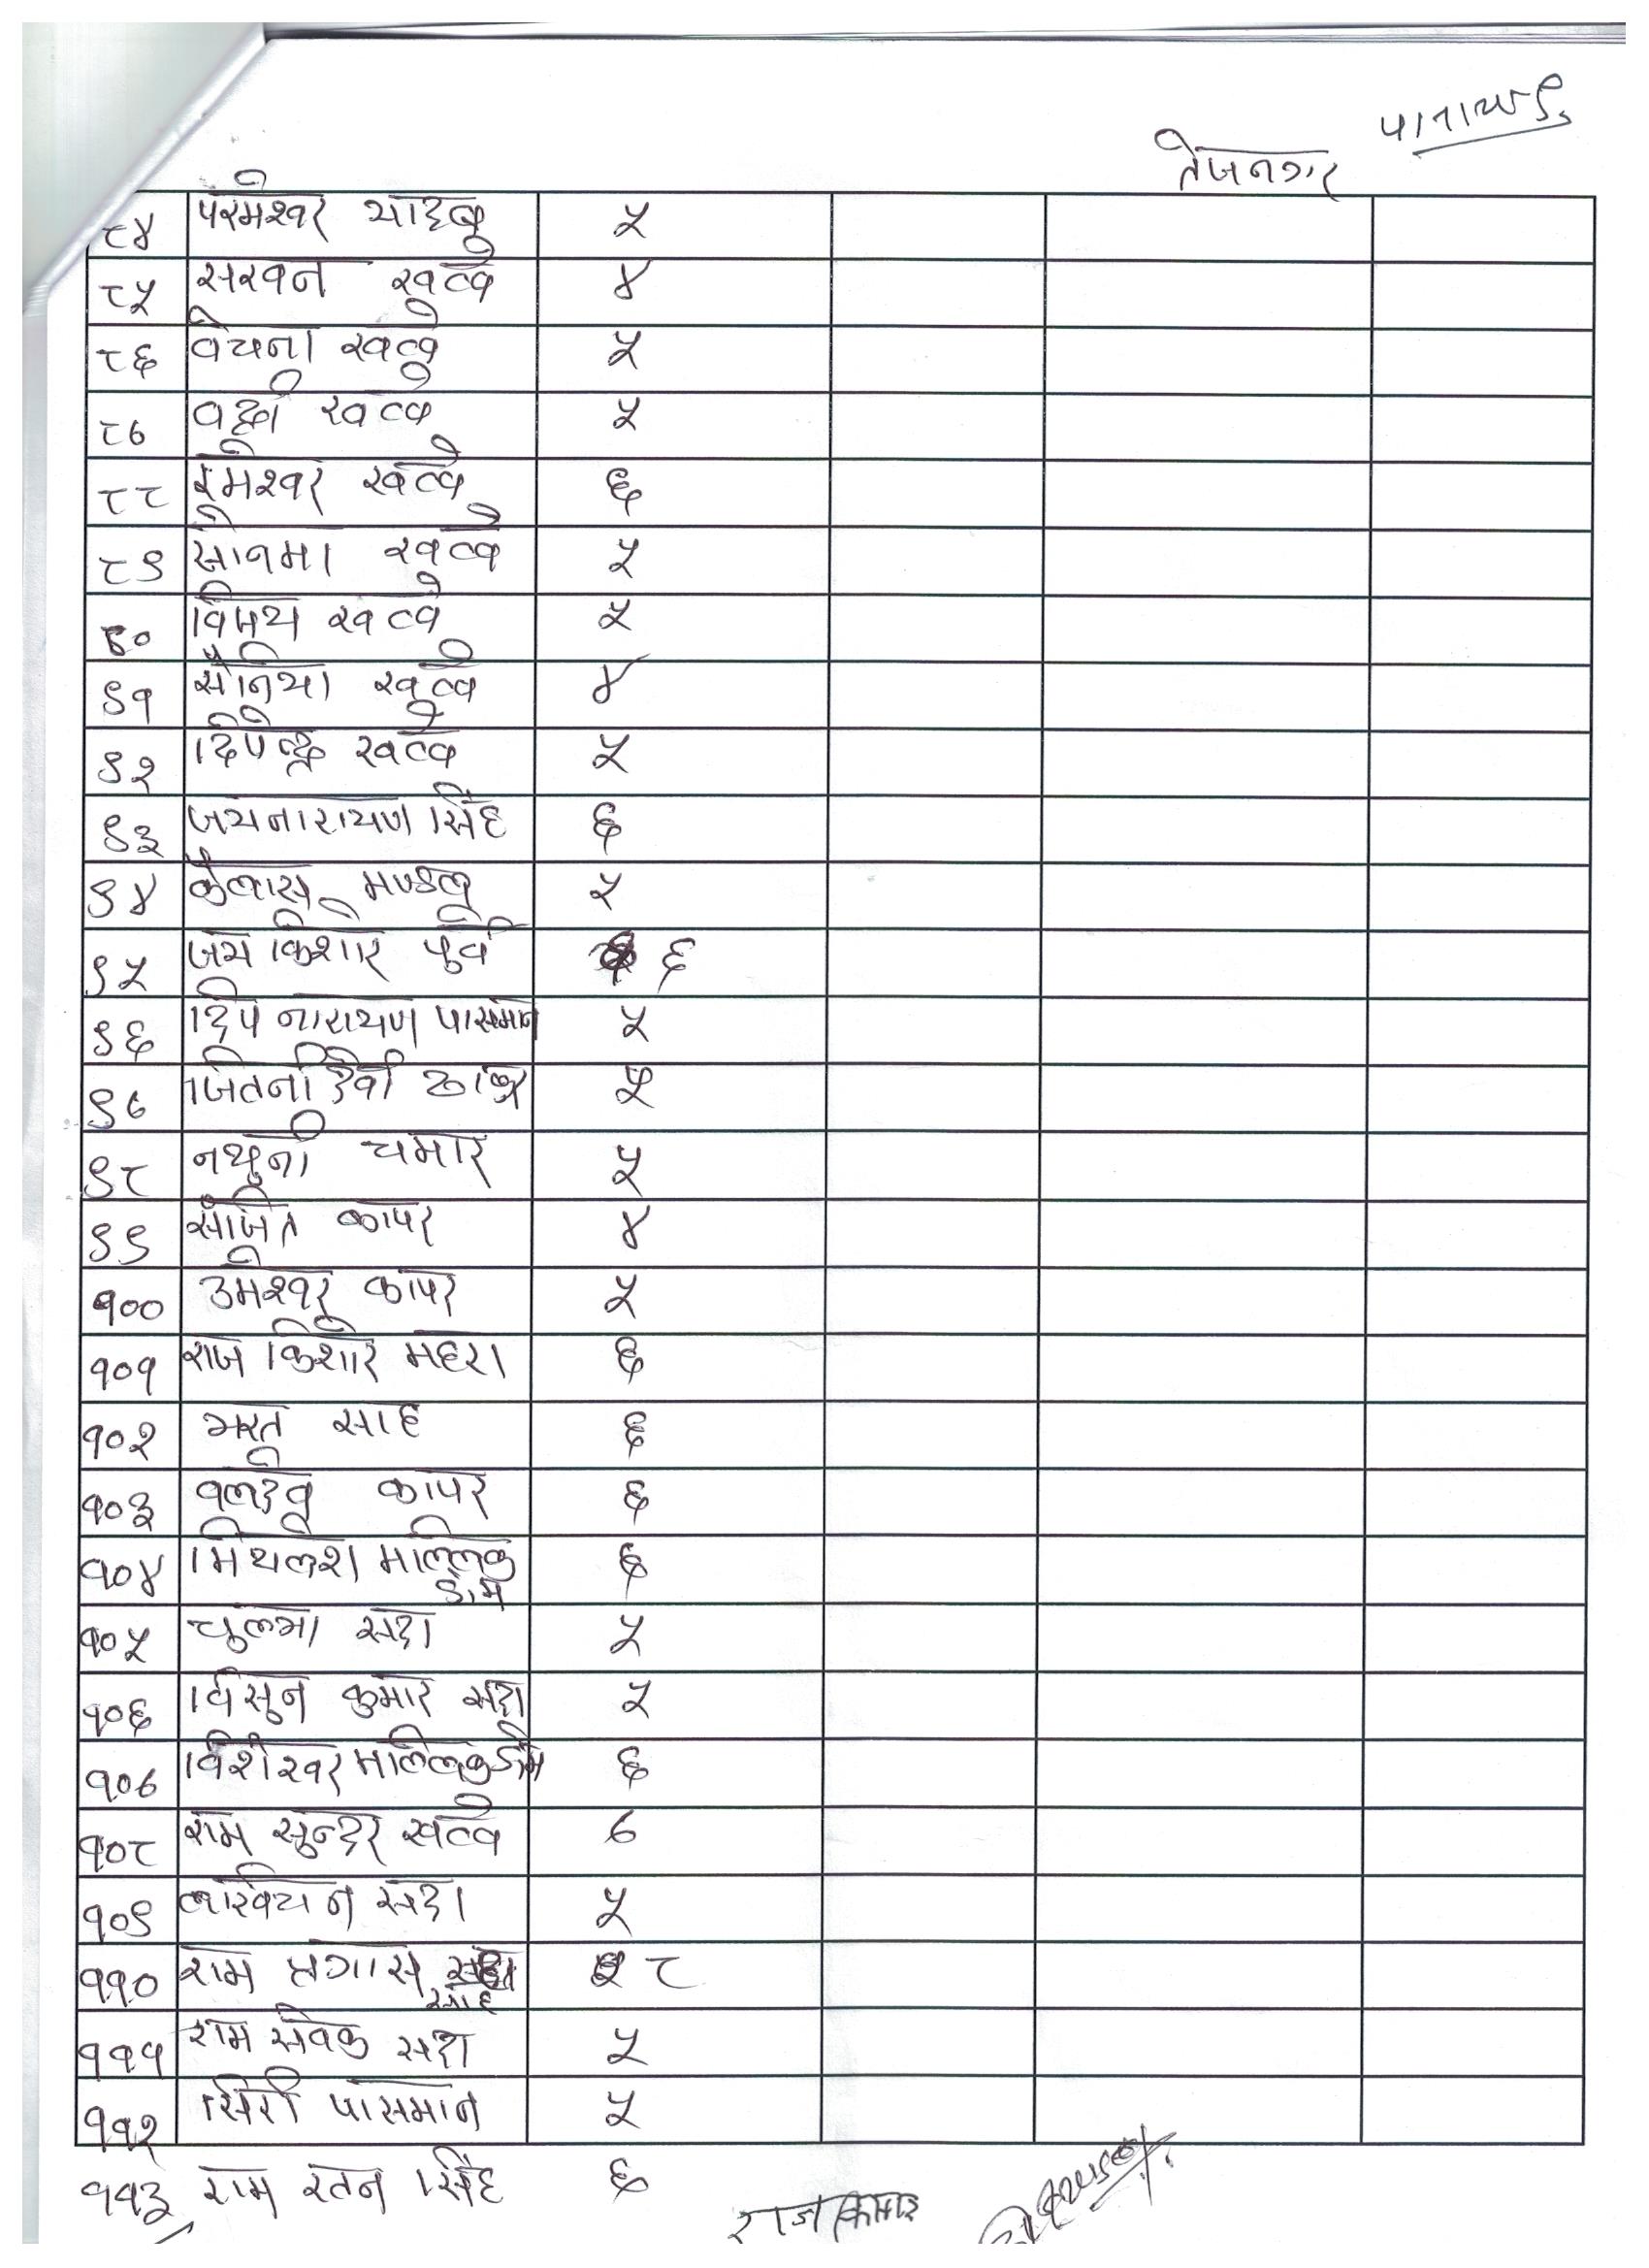 तेजनगर
८४ परमेश्वर यादव ५
८५ सरवन खत्वे ४
८६ वेचनी खत्वे ५
८७ खत्वे ५
८८ रमेश्वर खत्वे ६
८९ सोनमा खत्वे ५
९० विजय खत्वे ५
९१ सोनिया खत्वे ४
९२ दिपेन्द्र खत्वे ५
९३ जयनारायण सिंह ६
९४ कैलास मण्डल ५
९५ जय किशोर पुर्वे ६
९६ दिप नारायण पासमान ५
९७ जितनी देवी ठाकुर ५
९८ नथुनी चमार ५
९९ संजित कापर ४
१०० उमेश्वर कापर ५
१०१ राज किशोर महरा ६
१०२ भरत साह ६
१०३ वलदेव कापर ६
१०४ मिथलेश मल्लिक
डोम ६
१०५ चुल्मा सदा ५
१०६ विसुन कुमार सदा ५
१०७ विशेश्वर मल्लिक डोम ६
१०८ राम सुन्दर खत्वे ७
१०९ लखियन सदा ५
११० राम प्रगास
साह ८
१११ राम सेवक सदा ५
११२ सिरी पासमान ५
११३ राम रतन सिंह ६
राजकुमार